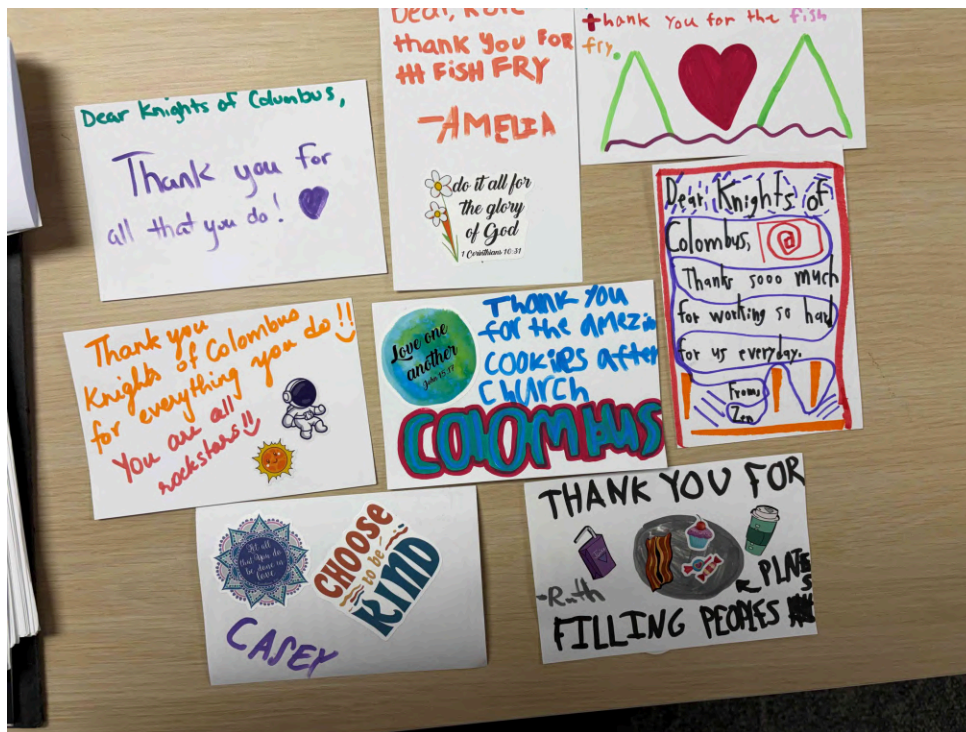 Dear Knights of Columbus,
Thank you for
all that you do!
Dear,
thank you FOR
FISH FRY
-AMELIA
do it all for
the glory
of God
1 Corinthians 10:31
thank you for the fish
fry.
Dear, Knights of
Colombus,
@
Thanks sooo much
for working so hard
for us everyday.
From,
Thank you
Knights of Colombus
for everything you do!!
You are all
rockstars!!
Love one
another
John 15:17
Thank you
for the amezin
cookies after
church
COLOMBUS
Let all
that you do
be done in
love.
CHOOSE
to be
KIND
CASEY
THANK YOU FOR
-Ruth
PLATES
FILLING PEOPLES